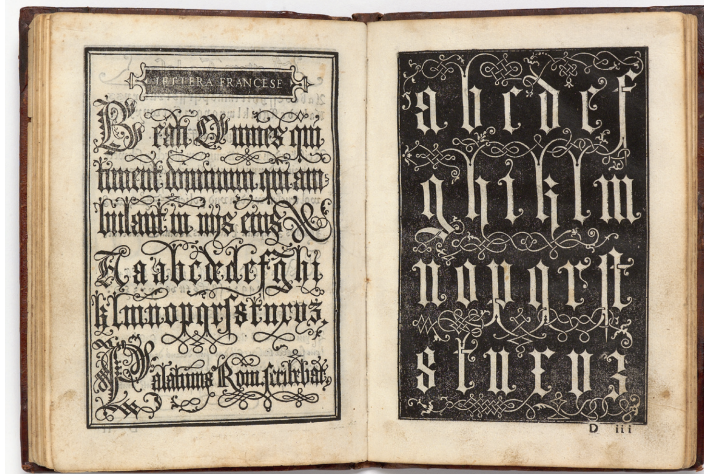 LETTERA FRANCESE
Beati Omnes qui
timent dominum qui am-
bulant in viis eius X
A a abcddefghi
klmnopqrſstuxvz
Palatinus Rom scribebat
abcdef
ghiklm
nopqrſt
stuxvz
D iii